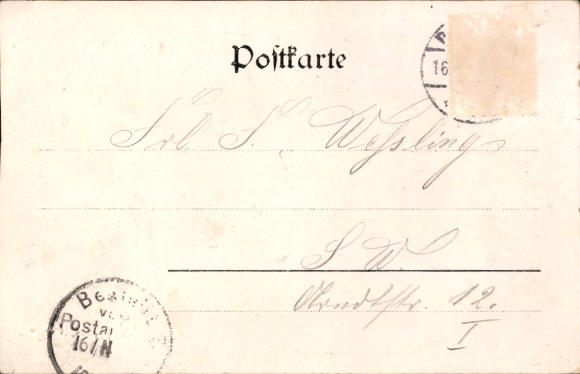 Postkarte
16
Frl. F. Wesslings
S. W.
Arndtstr. 12.
I
Beste
vom
Posta
16/N